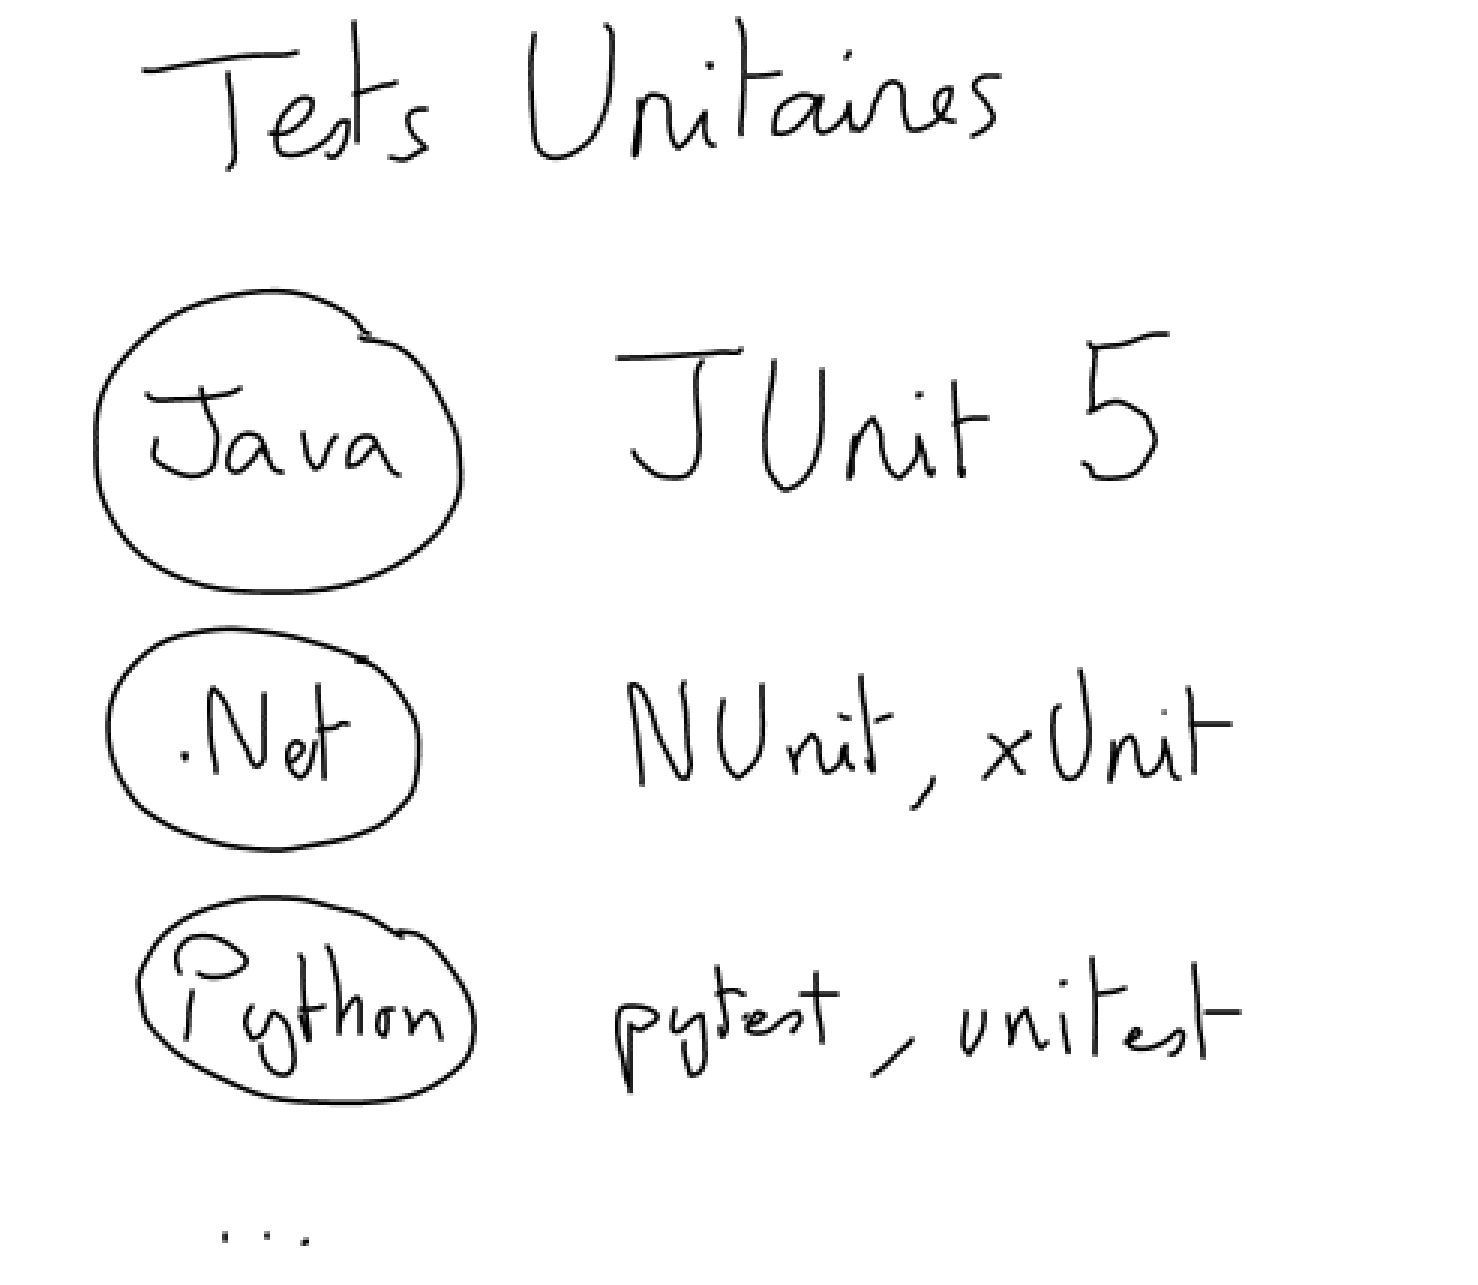 Tests Unitaires
Java JUnit 5
.Net NUnit, xUnit
Python pytest, unitest
...